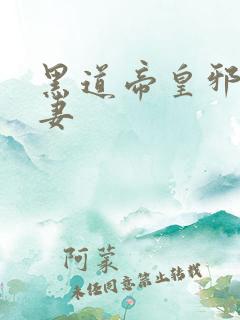 黑道帝皇邪
妻
阿蒙
未经同意禁止转载